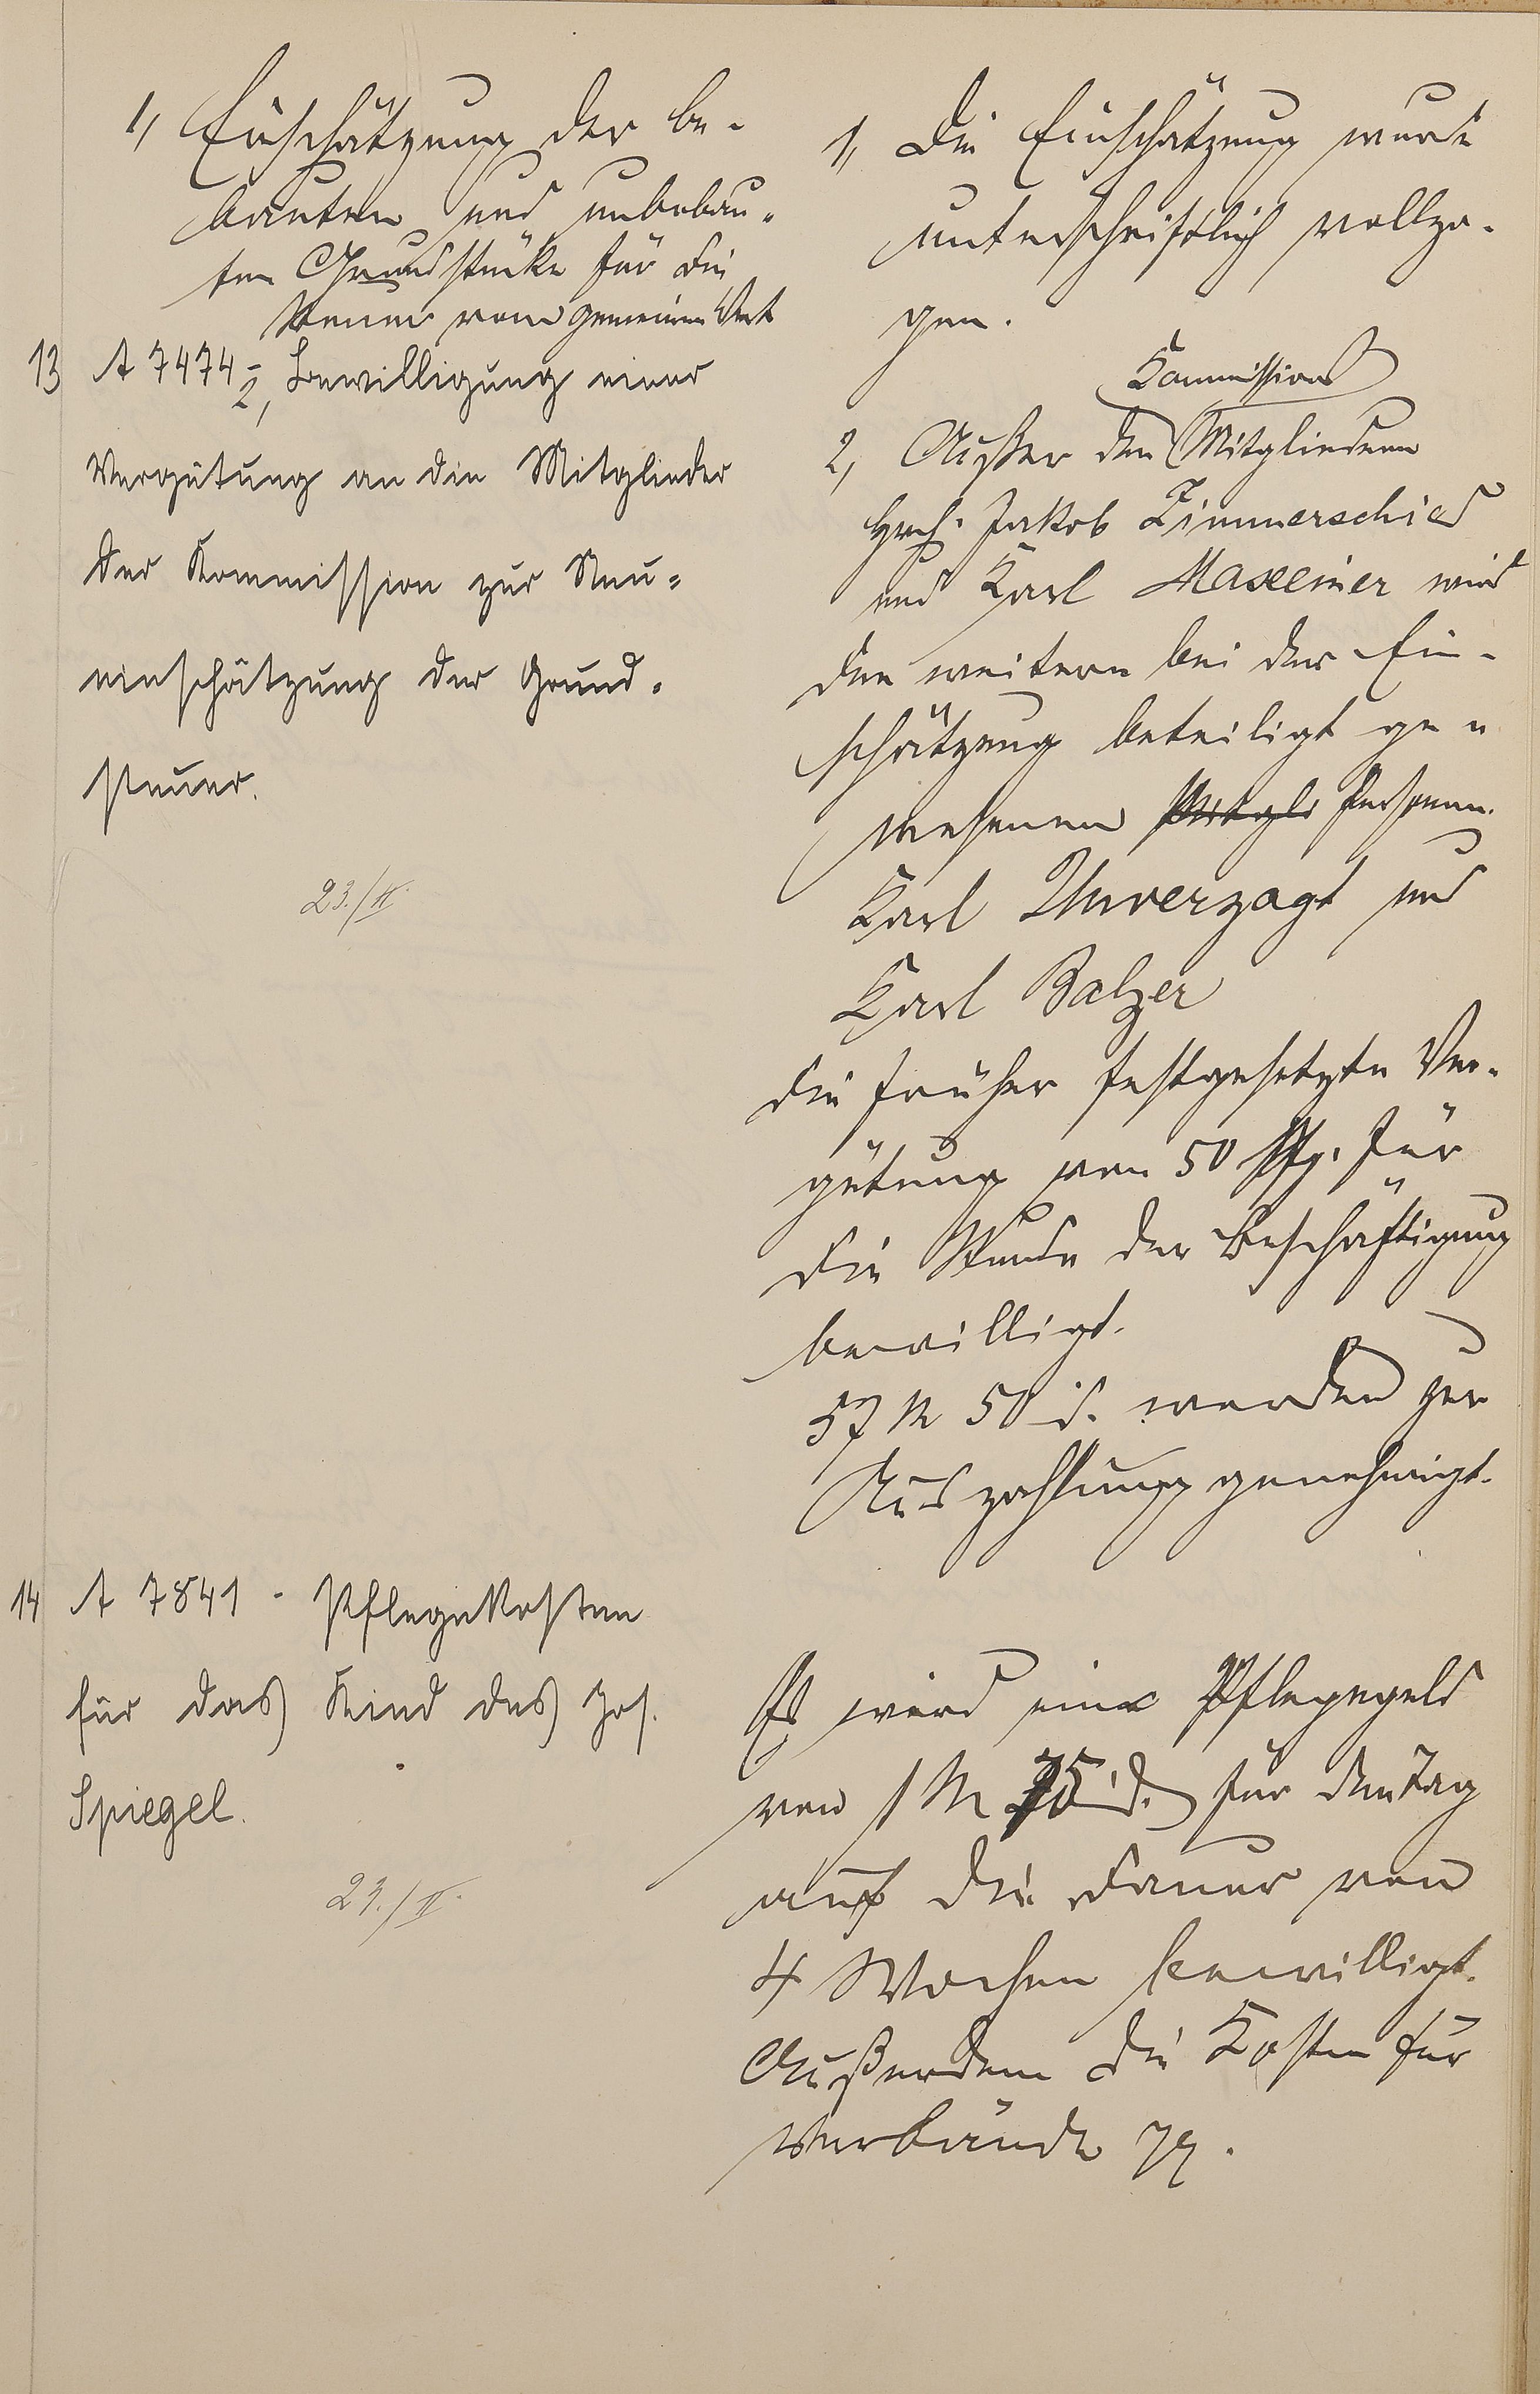 1, Einschätzung der be-
bauten und unbebau-
ten Grundstücke für die
Steuer vom gemeinen Wert
13 A 7474 - 2, Bewilligung einer
Vergütung an die Mitglieder
der Kommission zur Neu-
einschätzung der Grund-
steuer.
23./II.
1, Die Einschätzung wurde
unterschriftlich vollzo-
gen.
Kommissions
2, Außer den Mitgliedern
Hrch. Jakob Zimmerschied
und Karl Maxeiner wird
den weitern bei der Ein-
schätzung beteiligt ge-
wesenen Mitgli Personen.
Karl Unverzagt und
Karl Balzer
die früher festgesetzte Ver-
gütung von 50 Pfg. für
die Stunde der Beschäftigung
bewilligt.
57 M 50 d. werden zur
Auszahlung genehmigt.
14 A 7841 - Pflegekosten
für das Kind des Jos.
Spiegel.
23./II.
Es wird eine Pflegegeld
von 1 M 75 d. für den Tag
auf die Dauer von
4 Wochen bewilligt.
Außerdem die Kosten für
Verbände pp.